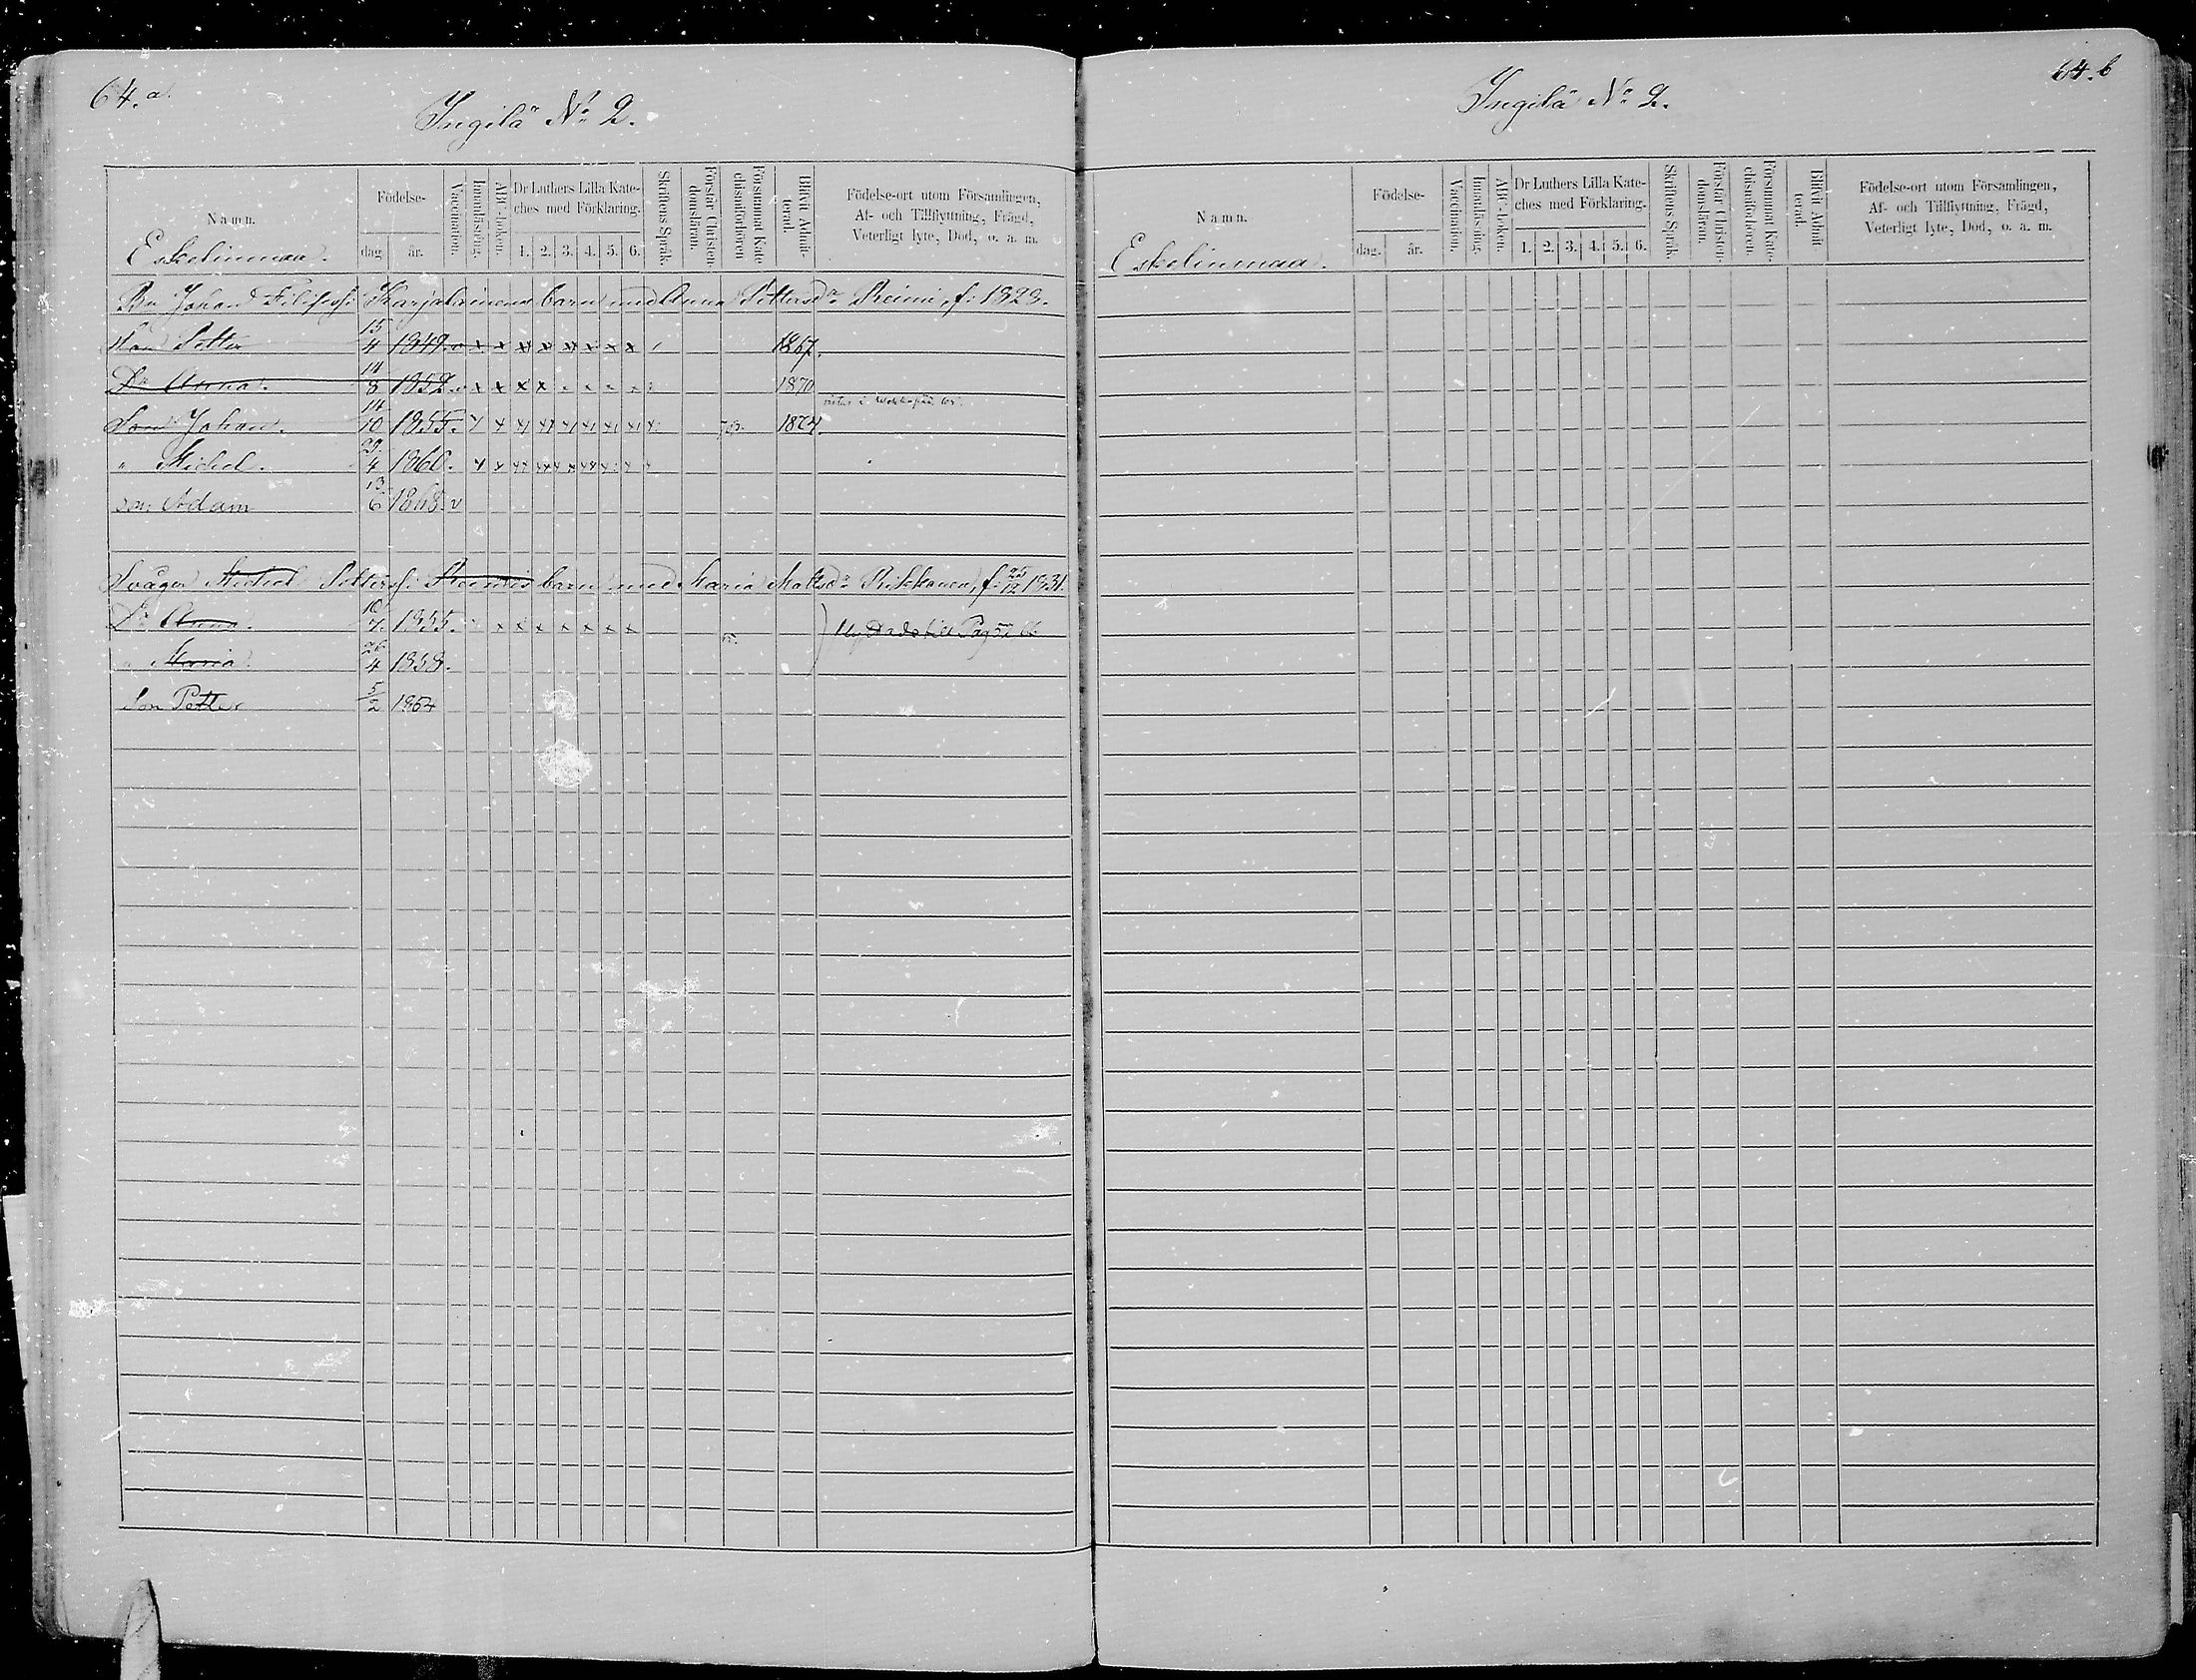 64.a.
Ingilä No 2.
Namn.
Födelse-
dag
år.
Vaccination.
Innanläsning.
ABC-boken.
Dr Luthers Lilla Kate-
ches med Förklaring.
1. 2. 3. 4. 5. 6.
Skriftens Språk.
Förstår Christen-
domsläran.
Försummat Kate-
chismiförhören
Blifvit Admit-
terad.
Födelse-ort utom Församlingen,
Af- och Tillflyttning, Frägd,
Veterligt lyte, Död, o. a. m.
Eskelinmaa.
Bn Johan Filipsf: Karjalainens barn med Anna Pettersdr Reimi, f: 1823.
Son Petter 15/4 1849. v x x x x x x x x 1867.
Dr Anna. 14/8 1852. v x x x x 1870
Son Johan. 14/10 1855. 1874
" Michel. 29/4 1860.
son Adam 13/6 1868. v
Svåger Michel Pettersf: Reimis barn med Maria Mattsdr Rikkonen, f: 25/12 1831.
Dr Anna. 10/7 1855. x x x x x x x
" Maria. 26/4 1858.
Son Petter 5/2 1864
64.b
Ingilä No 2.
Namn.
Födelse-
dag.
år.
Vaccination.
Innanläsning.
ABC-boken.
Dr Luthers Lilla Kate-
ches med Förklaring.
1. 2. 3. 4. 5. 6.
Skriftens Språk.
Förstår Christen-
domsläran.
Försummat Kate-
chismiförhören.
Blifvit Admit-
terad.
Födelse-ort utom Församlingen,
Af- och Tillflyttning, Frägd,
Veterligt lyte, Död, o. a. m.
Eskelinmaa.